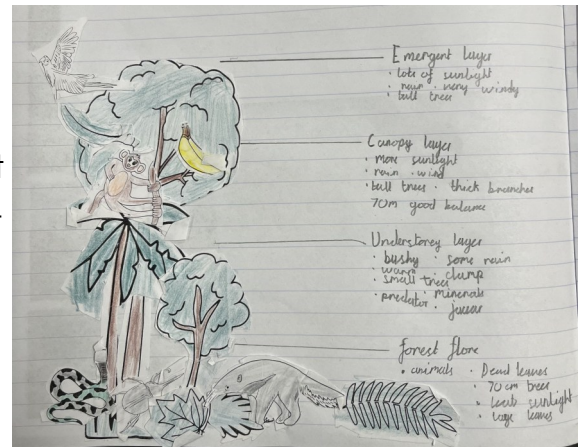 Emergent layer
• lots of sunlight
• rain • very windy
• tall trees
Canopy layer
• more sunlight
• rain • wind
• tall trees • thick branches
70m good balance
Understorey layer
• bushy • some rain
• warm • clump
• small trees
• predator • minerals
•
forest flore
• animals • Dead leaves
• 70cm trees
• least sunlight
• large leaves